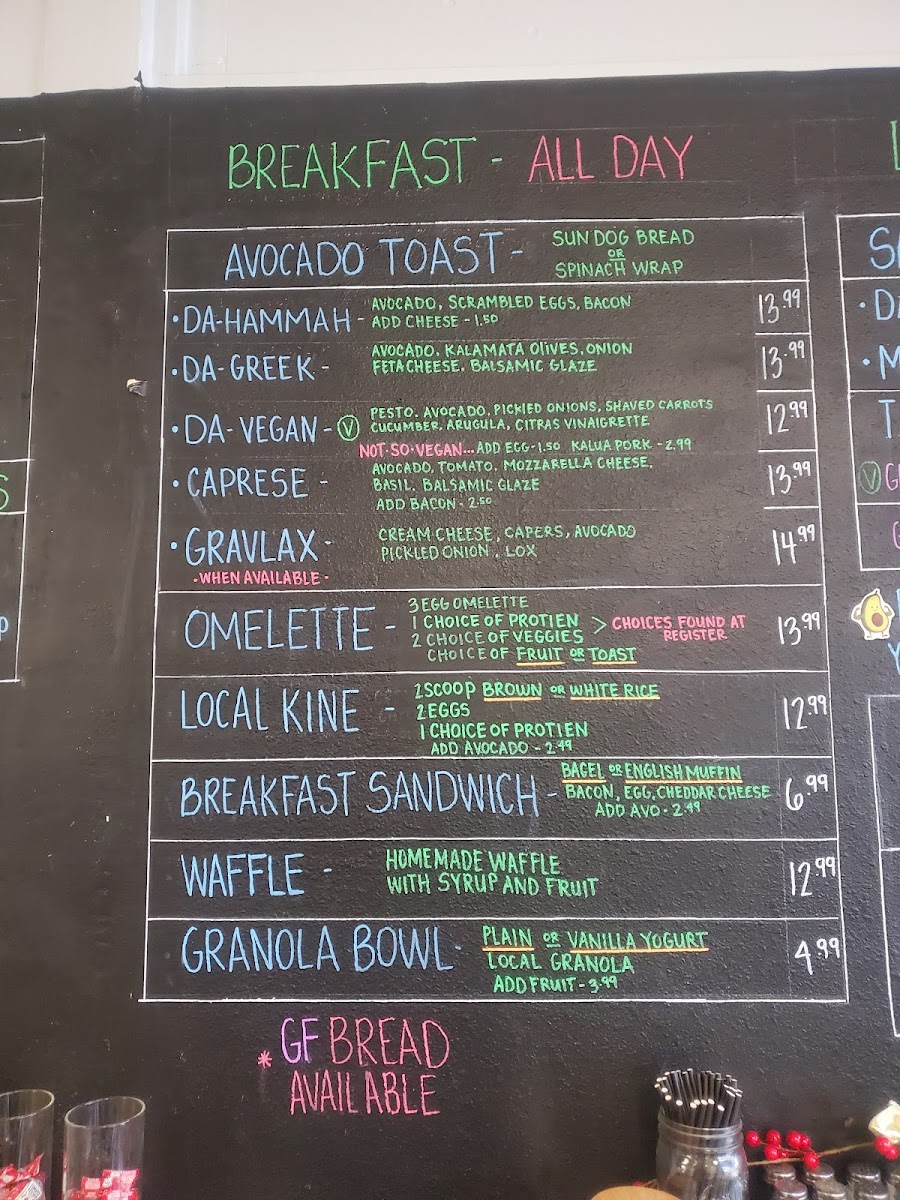 BREAKFAST - ALL DAY
AVOCADO TOAST -
SUN DOG BREAD
OR
SPINACH WRAP
• DA-HAMMAH -
AVOCADO, SCRAMBLED EGGS, BACON
ADD CHEESE - 1.50
13.99
• DA-GREEK -
AVOCADO, KALAMATA OLIVES, ONION
FETA CHEESE, BALSAMIC GLAZE
13.99
• DA-VEGAN - V
PESTO, AVOCADO, PICKLED ONIONS, SHAVED CARROTS
CUCUMBER, ARUGULA, CITRAS VINAIGRETTE
12.99
NOT·SO·VEGAN... ADD EGG-1.50 KALUA PORK - 2.99
• CAPRESE -
AVOCADO, TOMATO, MOZZARELLA CHEESE,
BASIL, BALSAMIC GLAZE
ADD BACON - 2.50
13.99
• GRAVLAX -
CREAM CHEESE, CAPERS, AVOCADO
PICKLED ONION, LOX
14.99
• WHEN AVAILABLE •
OMELETTE -
3 EGG OMELETTE
1 CHOICE OF PROTIEN
2 CHOICE OF VEGGIES
> CHOICES FOUND AT
REGISTER
CHOICE OF FRUIT OR TOAST
13.99
LOCAL KINE -
2 SCOOP BROWN OR WHITE RICE
2 EGGS
1 CHOICE OF PROTIEN
ADD AVOCADO - 2.49
12.99
BREAKFAST SANDWICH -
BAGEL OR ENGLISH MUFFIN
BACON, EGG, CHEDDAR CHEESE
ADD AVO - 2.49
6.99
WAFFLE -
HOMEMADE WAFFLE
WITH SYRUP AND FRUIT
12.99
GRANOLA BOWL -
PLAIN OR VANILLA YOGURT
LOCAL GRANOLA
ADD FRUIT - 3.99
4.99
* GF BREAD
AVAILABLE